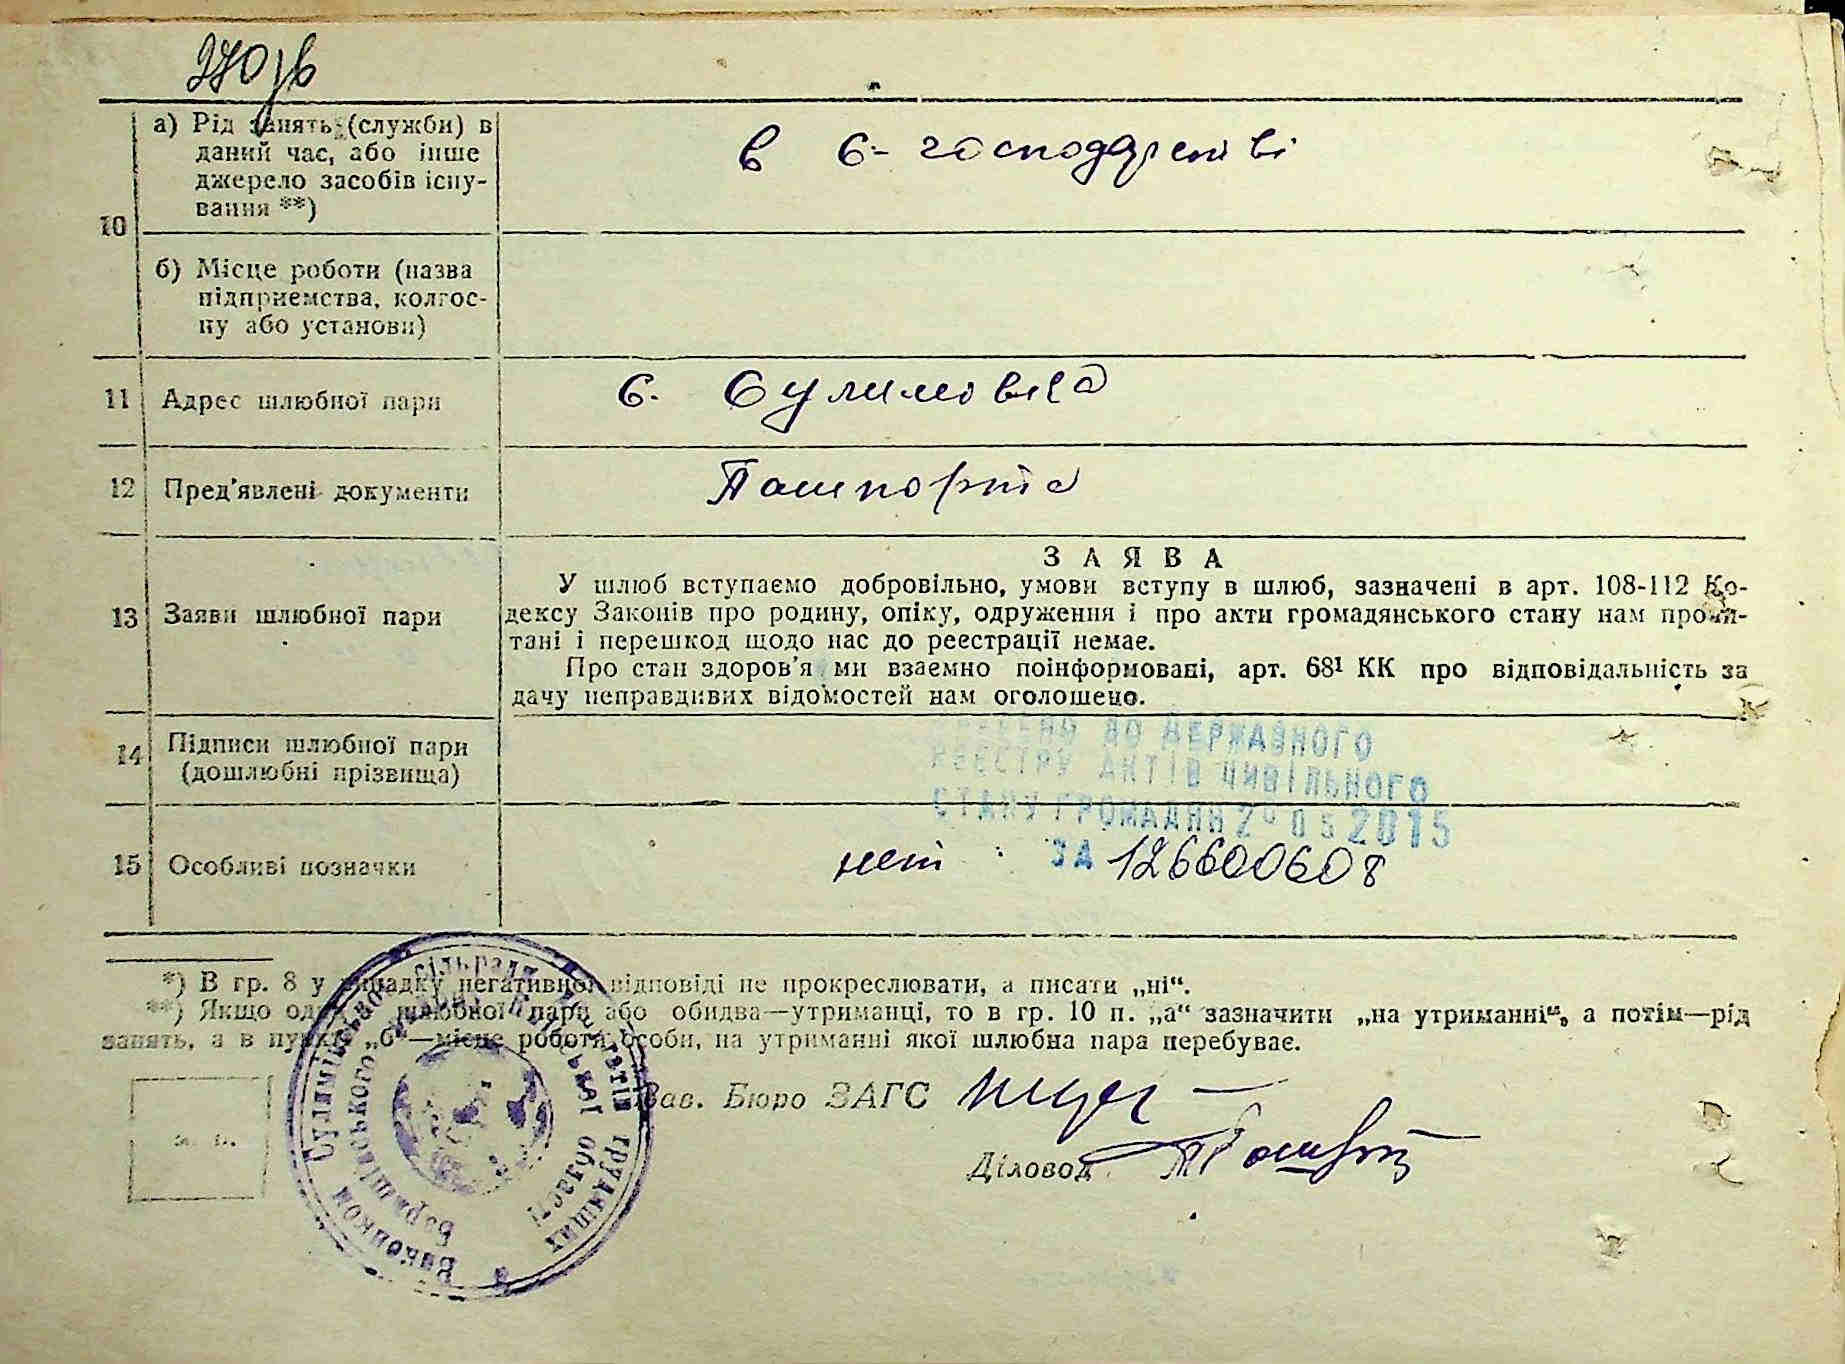 270зв
10
а) Рід занять (служби) в
даний час, або інше
джерело засобів існу-
вання **)
в с-господарстві
б) Місце роботи (назва
підприємства, колгос-
пу або установи)
11 Адрес шлюбної пари
с. Сулимовка
12 Пред'явлені документи
Пашпорта
13 Заяви шлюбної пари
ЗАЯВА
У шлюб вступаємо добровільно, умови вступу в шлюб, зазначені в арт. 108-112 Ко-
дексу Законів про родину, опіку, одруження і про акти громадянського стану нам прочи-
тані і перешкод щодо нас до реєстрації немає.
Про стан здоров'я ми взаємно поінформовані, арт. 68¹ КК про відповідальність за
дачу неправдивих відомостей нам оголошено.
14 Підписи шлюбної пари
(дошлюбні прізвища)
ВНЕСЕНО ДО ДЕРЖАВНОГО
РЕЄСТРУ АКТІВ ЦИВІЛЬНОГО
СТАНУ ГРОМАДЯН 2 05 2015
ЗА 126600608
15 Особливі позначки
нет
*) В гр. 8 у випадку негативної відповіді не прокреслювати, а писати „ні“.
**) Якщо один з шлюбної пари або обидва—утриманці, то в гр. 10 п. „а“ зазначити „на утриманні“, а потім—рід
занять, а в пункті „б“—місце роботи особи, на утриманні якої шлюбна пара перебуває.
Зав. Бюро ЗАГС
Діловод
М. П.
Виконком Сулимівської сільради депутатів трудящих
Баришівського району Київської області